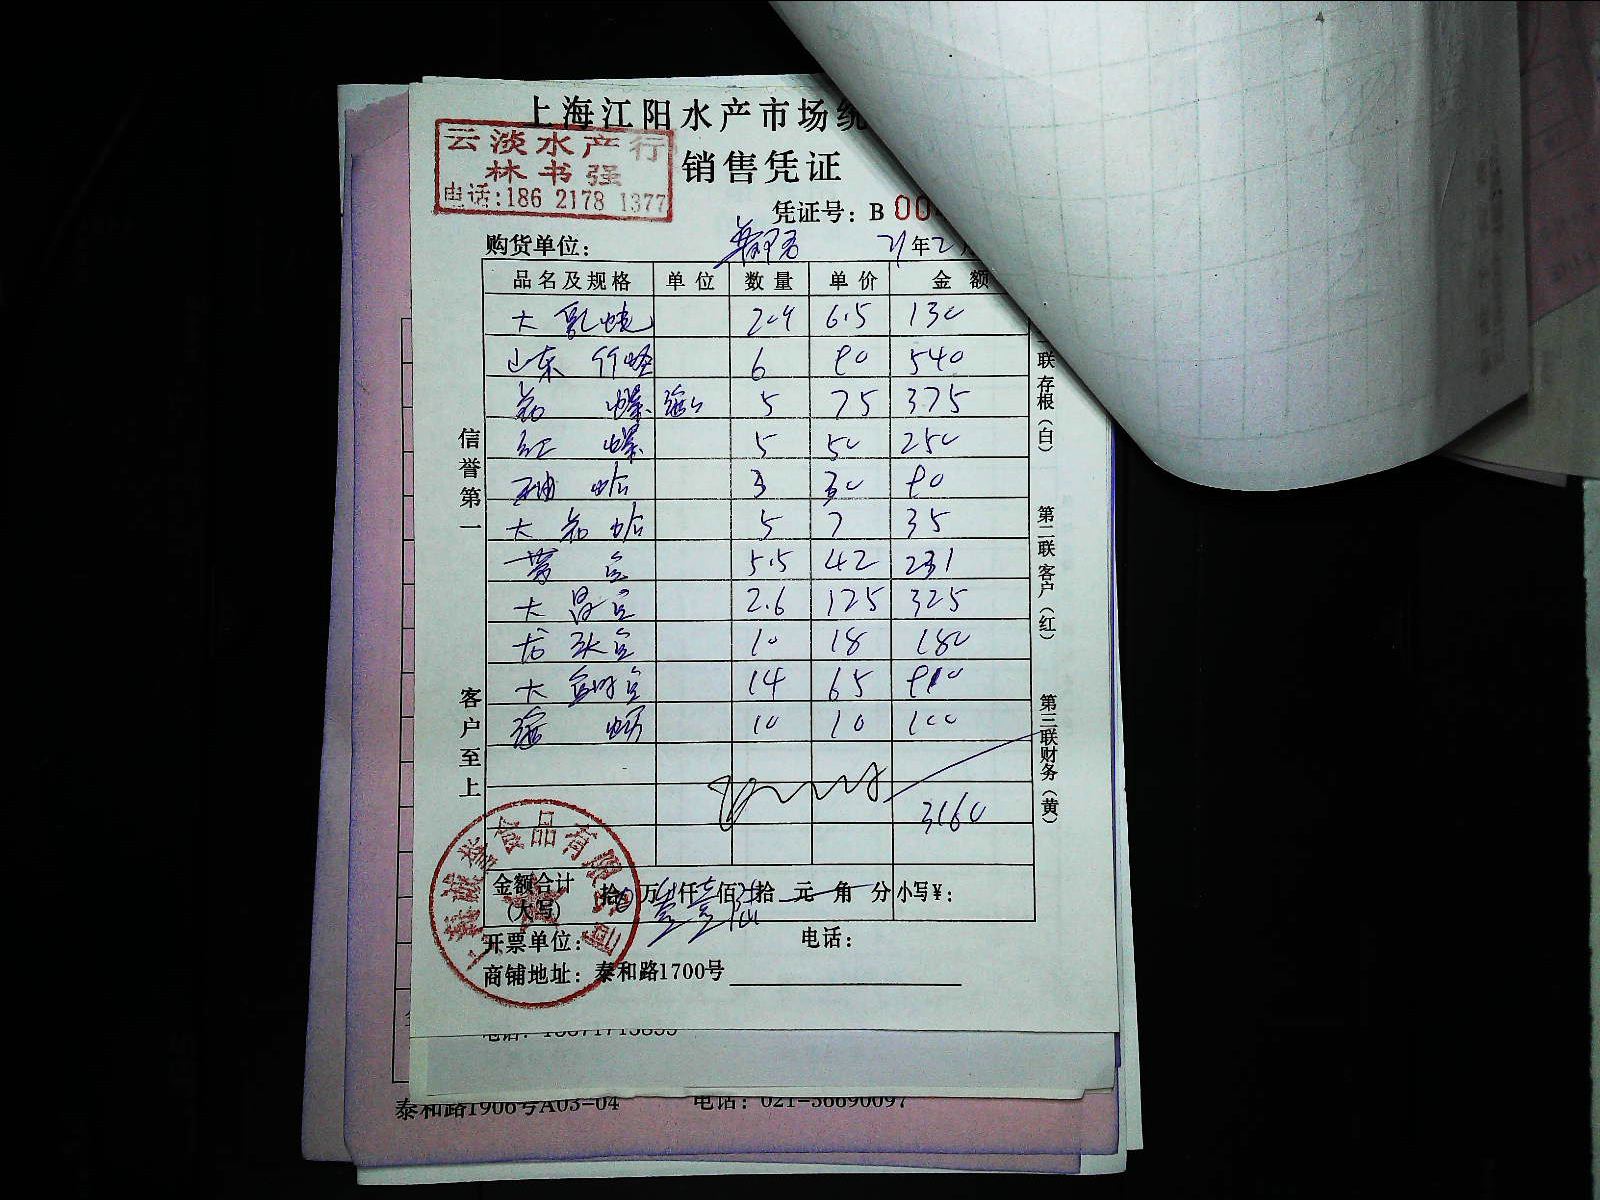 上海江阳水产市场统
云淡水产行
林书强
电话:186 2178 1377
销售凭证
凭证号: B 00
购货单位: 21年2月
品名及规格 单位 数量 单价 金额
大 20.4 6.5 130
山东 竹蛏 6 90 540
螺 5 75 375
红 螺 5 50 250
蛤 3 30 90
大 蛤 5 7 35
5.5 42 231
大 2.6 125 325
龙头 10 18 180
大 14 65 910
10 10 100
3160
金额合计
(大写) 拾 万 仟 佰 拾 元 角 分 小写¥:
开票单位: 电话:
商铺地址: 泰和路1700号
信誉第一
客户至上
联存根(白)
第二联客户(红)
第三联财务(黄)
上海诚誉食品有限公司
泰和路1906号A03-04 电话: 021-56690097